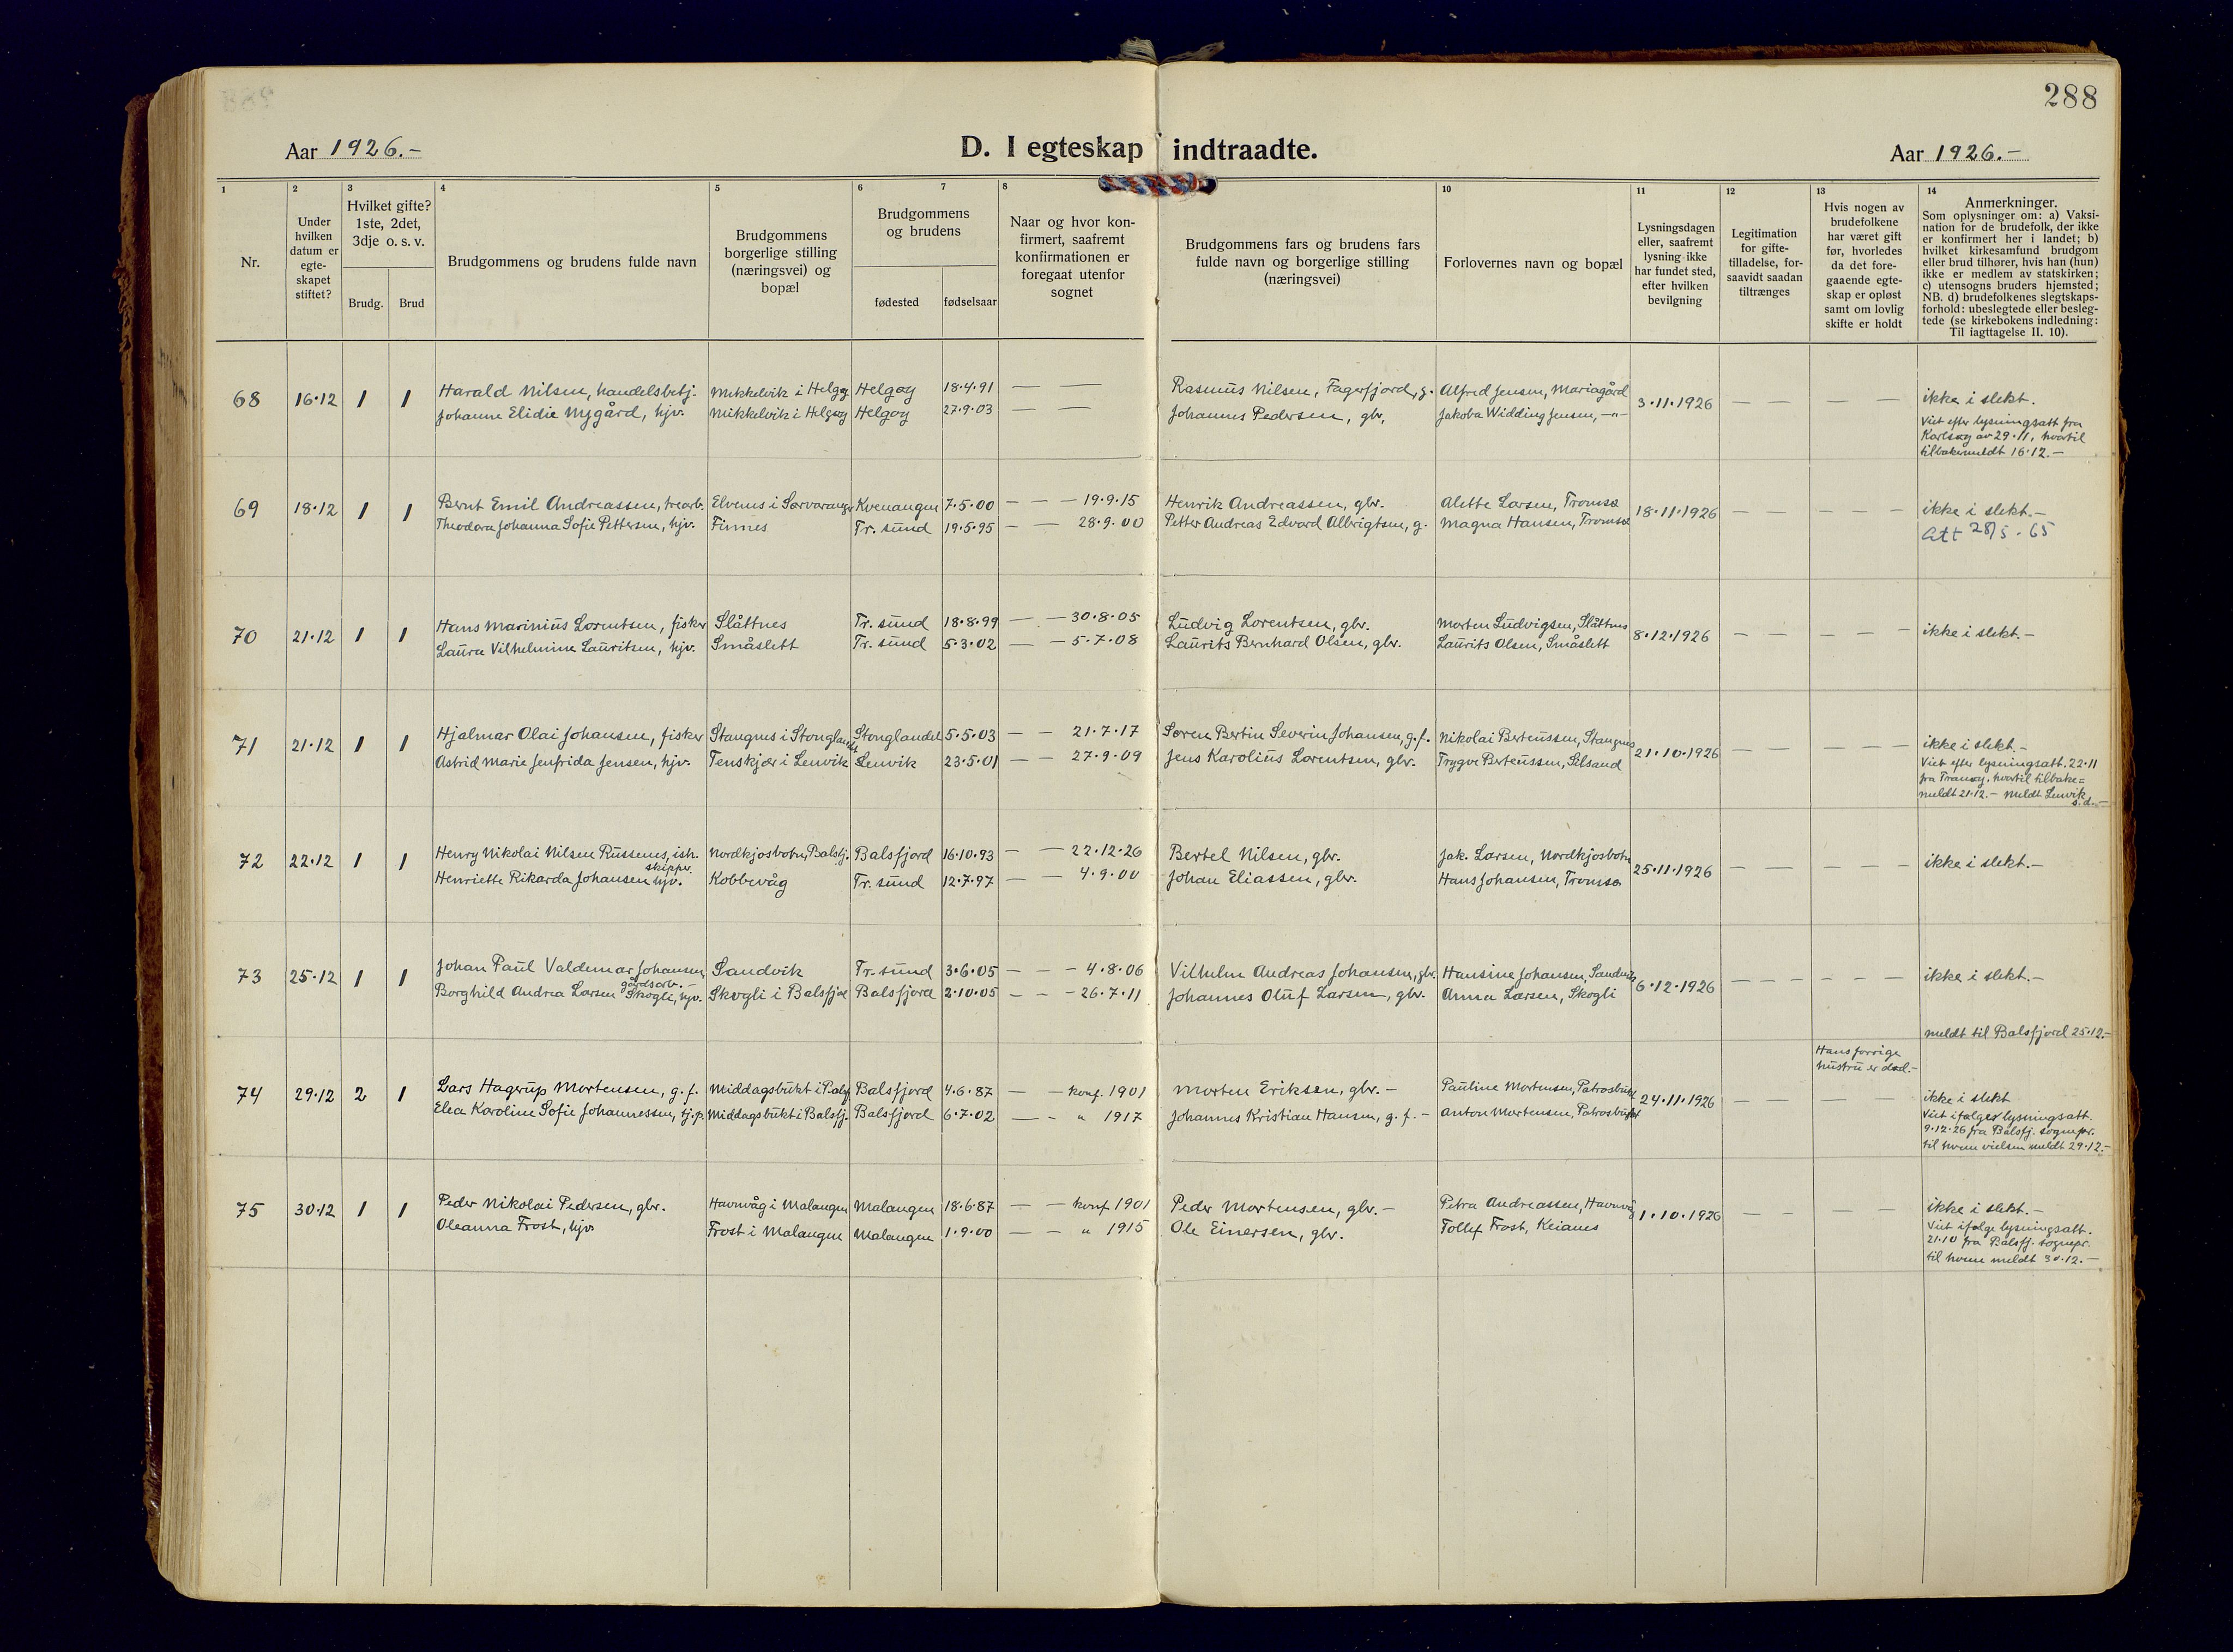 288
Aar 1926.-
D. I egteskap indtraadte.
Aar 1926.-
1
2
3
4
5
6
7
8
10
11
12
13
14
Nr.
Under hvilken datum er egte-skapet stiftet?
Hvilket gifte? 1ste, 2det, 3dje o. s. v.
Brudg.
Brud
Brudgommens og brudens fulde navn
Brudgommens borgerlige stilling (næringsvei) og bopæl
Brudgommens og brudens
fødested
fødselsaar
Naar og hvor kon-firmert, saafremt konfirmationen er foregaat utenfor sognet
Brudgommens fars og brudens fars fulde navn og borgerlige stilling (næringsvei)
Forlovernes navn og bopæl
Lysningsdagen eller, saafremt lysning ikke har fundet sted, efter hvilken bevilgning
Legitimation for gifte-tilladelse, for-saavidt saadan tiltrænges
Hvis nogen av brudefolkene har været gift før, hvorledes da det fore-gaaende egte-skap er opløst samt om lovlig skifte er holdt
Anmerkninger.
Som oplysninger om: a) Vaksi-
nation for de brudefolk, der ikke
er konfirmert her i landet; b)
hvilket kirkesamfund brudgom
eller brud tilhører, hvis han (hun)
ikke er medlem av statskirken;
c) utensogns bruders hjemsted;
NB. d) brudefolkenes slegtskaps-
forhold: ubeslegtede eller besleg-
tede (se kirkebokens indledning:
Til iagttagelse II. 10).
68 16.12 1 1 Harald Nilsen, handelsbetj. Mikkelvik i Helgøy Helgøy 18.4.91 — — Rasmus Nilsen, Fagerfjord, g. Alfred Jensen, Mariagård 3.11.1926 — — — — ikke i slekt.
Johanne Elidie Nygård, hjv. Mikkelvik i Helgøy Helgøy 27.9.03 — — Johannes Pedersen, gbr. Jakoba Widding Jensen, -"-
Viet efter lysningsatt fra
Karlsøy av 29.11, hvortil
tilbakemeldt 16.12.-
69 18.12 1 1 Bernt Emil Andreassen, trearb. Elvenes i Sørvaranger Kvenangen 7.5.00 — — — 19.9.15 Henrik Andreassen, gbr. Alette Larsen, Tromsø 18.11.1926 — — — — — ikke i slekt.-
Theodora Johanna Sofie Pettersen, hjv. Finnes Tr. sund 19.5.95 — — 28.9.00 Petter Andreas Edvard Albrigtsen, g. Magna Hansen, Tromsø
Att 28/5.65
70 21.12 1 1 Hans Marinius Lorentsen, fisker Slåttnes Tr. sund 18.8.99 — — 30.8.05 Ludvig Lorentsen, gbr. Morten Ludvigsen, Slåttnes 8.12.1926 — — — — — ikke i slekt.-
Laura Vilhelmine Lauritsen, hjv. Småslett Tr. sund 5.3.02 — — 5.7.08 Laurits Bernhard Olsen, gbr. Laurits Olsen, Småslett
71 21.12 1 1 Hjalmar Olai Johansen, fisker Stangnes i Stonglandet Stonglandet 5.5.03 — — 21.7.17 Søren Bertin Severin Johansen, g.f. Nikolai Berteussen, Stangnes 21.10.1926 — — — — — ikke i slekt.-
Astrid Marie Jenfrida Jensen, hjv. Tenskjær i Lenvik Lenvik 23.5.01 — — 27.9.09 Jens Karolius Lorentsen, gbr. Trygve Berteussen, Silsand
Viet efter lysningsatt. 22.11
fra Tranøy, hvortil tilbake=
meldt 21.12.- Meldt Lenvik
s.d.-
72 22.12 1 1 Henry Nikolai Nilsen Russenes, ish. skipper. Nordkjosbotn, Balsfj. Balsfjord 16.10.93 — — 22.12.26 Bertel Nilsen, gbr. Jak. Larsen, Nordkjosbotn 25.11.1926 — — — — — ikke i slekt.-
Henriette Rikarda Johansen hjv. Kobbevåg Tr. sund 12.7.97 — — 4.9.00 Johan Eliassen, gbr. Hans Johansen, Tromsø
73 25.12 1 1 Johan Paul Valdemar Johansen, gårdsarb.- Sandvik Tr. sund 3.6.05 — — - 4.8.06 Vilhelm Andreas Johansen, gbr. Hansine Johansen, Sandvik 6.12.1926 — — — — — ikke i slekt.-
Borghild Andrea Larsen Skogli, hjv. Skogli i Balsfjord Balsfjord 2.10.05 — — -26.7.11 Johannes Oluf Larsen, gbr. Anna Larsen, Skogli
meldt til Balsfjord 25.12.-
Hans forrige
hustru er død.-
74 29.12 2 1 Lars Hagerup Mortensen, g.f. Middagsbukt i Balsfj Balsfjord 4.6.87 — — konf. 1901 Morten Eriksen, gbr.- Pauline Mortensen, Patrosbukt 24.11.1926 — — — — ikke i slekt
Elea Karoline Sofie Johannessen, tj.p. Middagsbukt i Balsfj. Balsfjord 6.7.02 — - " 1917 Johannes Kristian Hansen, g.f.- Anton Mortensen, Patrosbukt
Viet ifølge lysningsatt.
9.12.26 fra Balsfj. sognepr.
til hvem vielsen meldt 29.12.-
75 30.12 1 1 Peder Nikolai Pedersen, gbr. Havnvåg i Malangen Malangen 18.6.87 — — konf 1901 Peder Mortensen, gbr.- Petra Andreassen, Havnvå 1.10.1926 — — — — ikke i slekt.-
Oleanna Frost, hjv. Frost i Malangen Malangen 1.9.00 — — " 1915 Ole Einersen, gbr. Tollef Frost, Keianes
Viet ifølge lysningsatt.
21.10 fra Balsfj. sognepr.
til hvem meldt 30.12.-